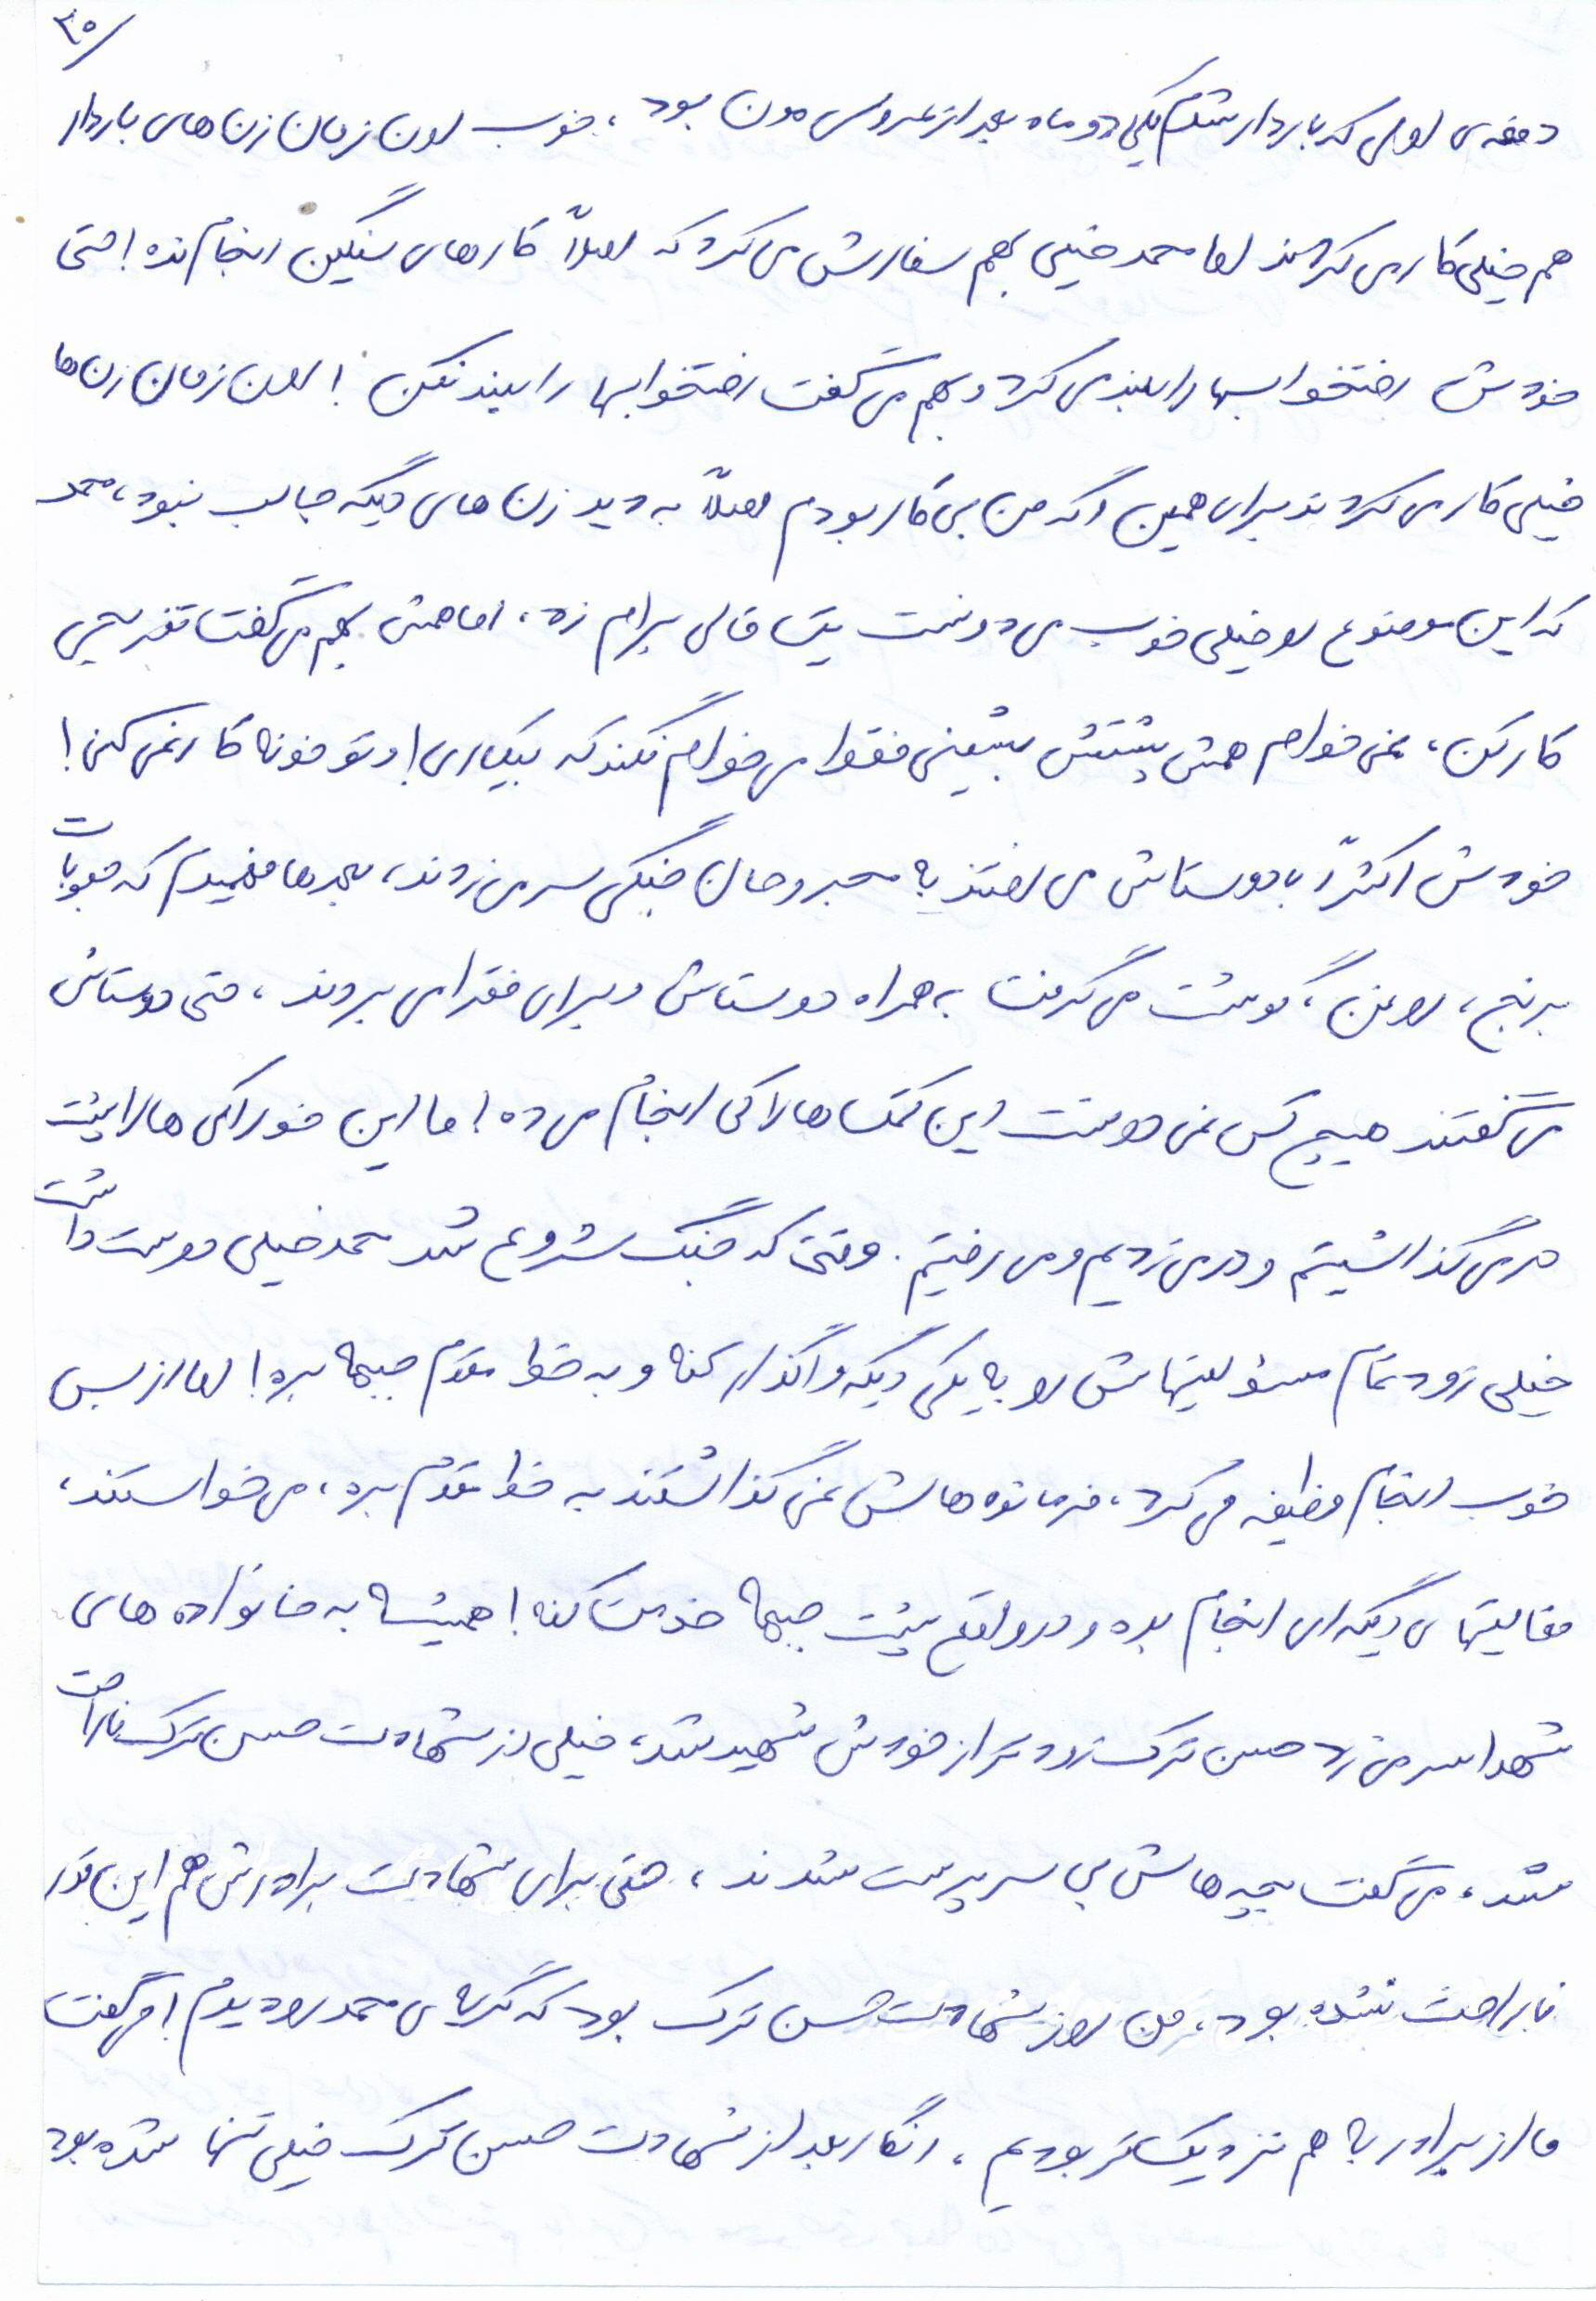 ۳۵/
دفعه‌ی اولی که باردار شدم یکی دو ماه بعد از عروسی مون بود، خوب اون زمان زن های باردار
هم خیلی کار می کردند اما محمد خیلی بهم سفارش می کرد که اصلاً کارهای سنگین انجام نده! حتی
خودش رختخوابها را بلند می کرد و بهم می گفت رختخوابها را بلند نکن! اون زمان زن ها
خیلی کار می کردند برای همین اگه من بی کار بودم اصلاً به دید زن های دیگه جالب نبود، محمد
که این موضوع رو خیلی خوب می دونست یک قالی برام زد، اما همش بهم می گفت تفریحی
کار کن، نمی خوام همش پشتش بشینی فقط می خوام نگند که بیکاری! و تو خونه کار نمی کنی!
خودش اکثراً با دوستاش می رفتند به مجروحان جنگی سر می زدند، بعدها فهمیدم که حبوبات
برنج، روغن، گوشت می گرفت به همراه دوستاش و برای فقرا می بردند، حتی دوستاش
می گفتند هیچ کس نمی دونست این کمک ها را کی انجام می ده! ما این خوراکی ها را پشت
در می گذاشتیم و در می زدیم و می رفتیم. وقتی که جنگ شروع شد محمد خیلی دوست داشت
خیلی زود تمام مسئولیتهاش رو به یکی دیگه واگذار کنه و به خط مقدم جبهه بره! اما از بس
خوب انجام وظیفه می کرد، فرمانده هاش نمی گذاشتند به خط مقدم بره، می خواستند،
فعالیتهای دیگه ای انجام بده و در واقع پشت جبهه خدمت کنه! همیشه به خانواده های
شهدا سر می زد حسن ترک زودتر از خودش شهید شد، خیلی از شهادت حسن ترک ناراحت
شد، می گفت بچه هاش بی سرپرست شدند، حتی برای شهادت برادرش هم این قدر
ناراحت نشده بود، من روز شهادت حسن ترک بود که گریه ی محمد رو دیدم! می گفت
ما از برادر به هم نزدیک تر بودیم، انگار بعد از شهادت حسن ترک خیلی تنها شده بود